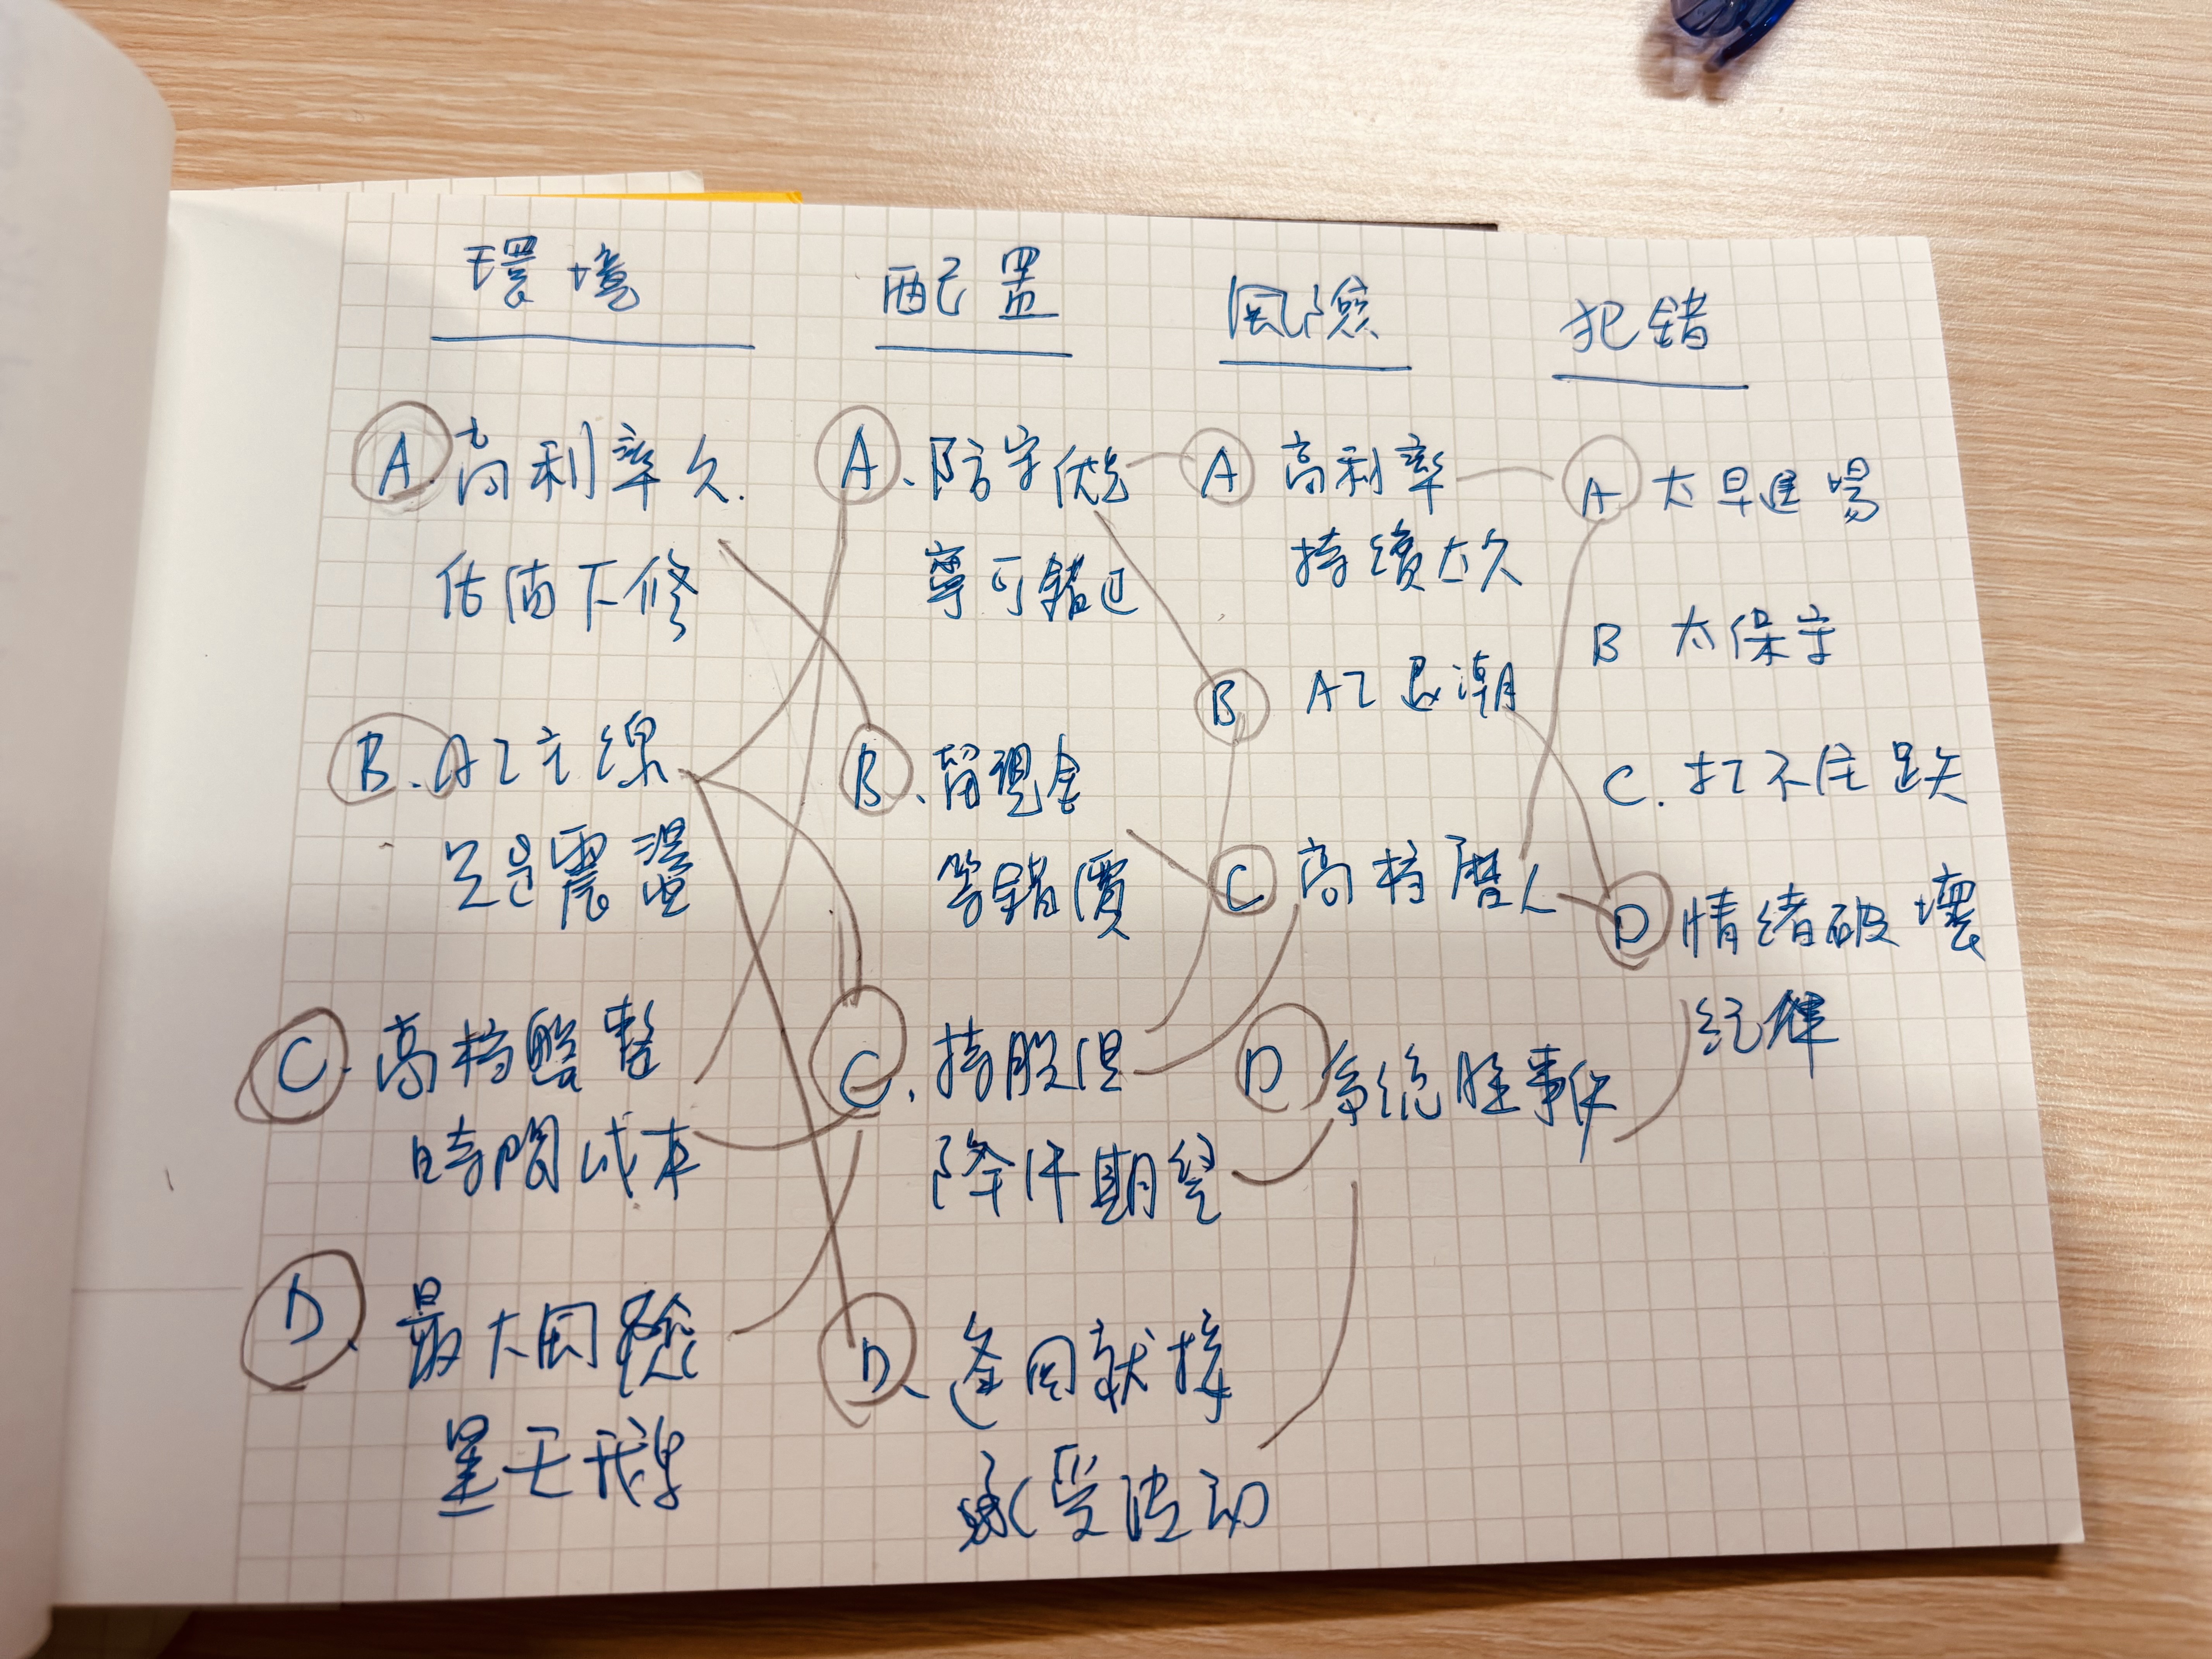 環境
A. 高利率久.
估值下修
B. AI主線
只是震盪
C. 高档盤整
時間成本
D. 最大風險
是天鵝
配置
A. 防守優先
寧可錯过
B. 留現金
等錯價
C. 持股但
降低期望
D. 逢回就接
承受波动
風險
A 高利率
持續太久
B AI退潮
C 高档磨人
D 系統性事件
犯錯
A 太早進場
B 太保守
C. 扛不住跌
D 情緒破壞
紀律